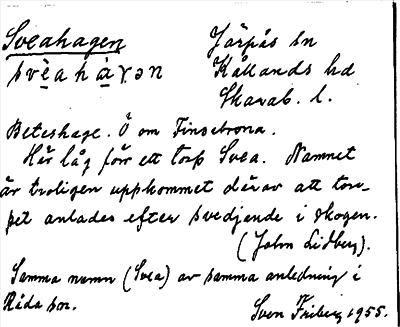 Sveahagen
Järpås sn
svèahàγən
Kållands hd
Skarab. l.
Beteshage. Ö om Finsebrona.
Här låg förr ett torp Svea. Namnet
är troligen uppkommet därav att tor-
pet anlades efter svedjande i skogen.
(John Lidberg).
Samma namn (Svea) av samma anledning i
Råda sn.
Sven Friberg 1955.